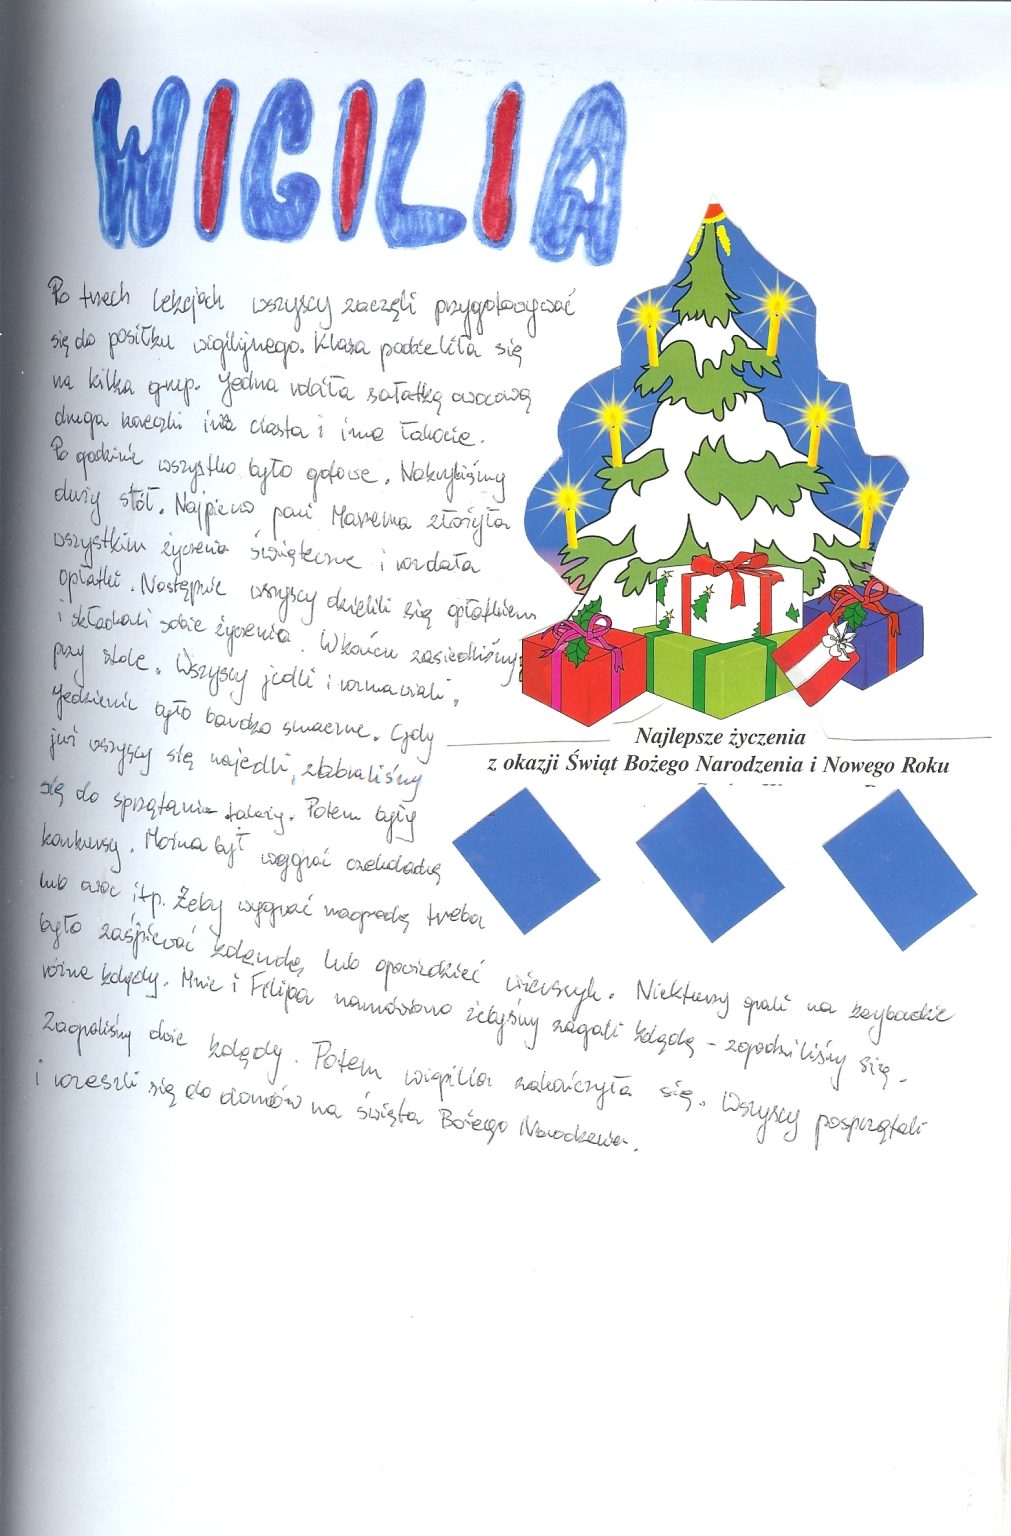 WIGILIA
Po trzech lekcjach wszyscy zaczęli przygotowywać
się do posiłku wigilijnego. Klasa podzieliła się
na kilka grup. Jedna robiła sałatkę owocową
druga kanapki inna ciasta i inne łakocie.
Po godzinie wszystko było gotowe. Nakryliśmy
duży stół. Najpierw pani Marzena złożyła
wszystkim życzenia świąteczne i rozdała
opłatki. Następnie wszyscy dzielili się opłatkiem
i składali sobie życzenia. W końcu zasiedliśmy
przy stole. Wszyscy jedli i rozmawiali.
Jedzenie było bardzo smaczne. Gdy
już wszyscy się najedli, zabraliśmy
się do sprzątania talerzy. Potem były
konkursy. Można był wygrać czekoladkę
lub owoc itp. Żeby wygrać nagrodę trzeba
było zaśpiewać kolendę lub opowiedzieć wierszyk. Niektórzy grali na keybordzie
różne kolędy. Mnie i Filipa namówiono żebyśmy zagrali kolędę - zgodziliśmy się.
Zagraliśmy dwie kolędy. Potem wigilia zakończyła się. Wszyscy posprzątali
i rozeszli się do domów na święta Bożego Narodzenia.
Najlepsze życzenia
z okazji Świąt Bożego Narodzenia i Nowego Roku